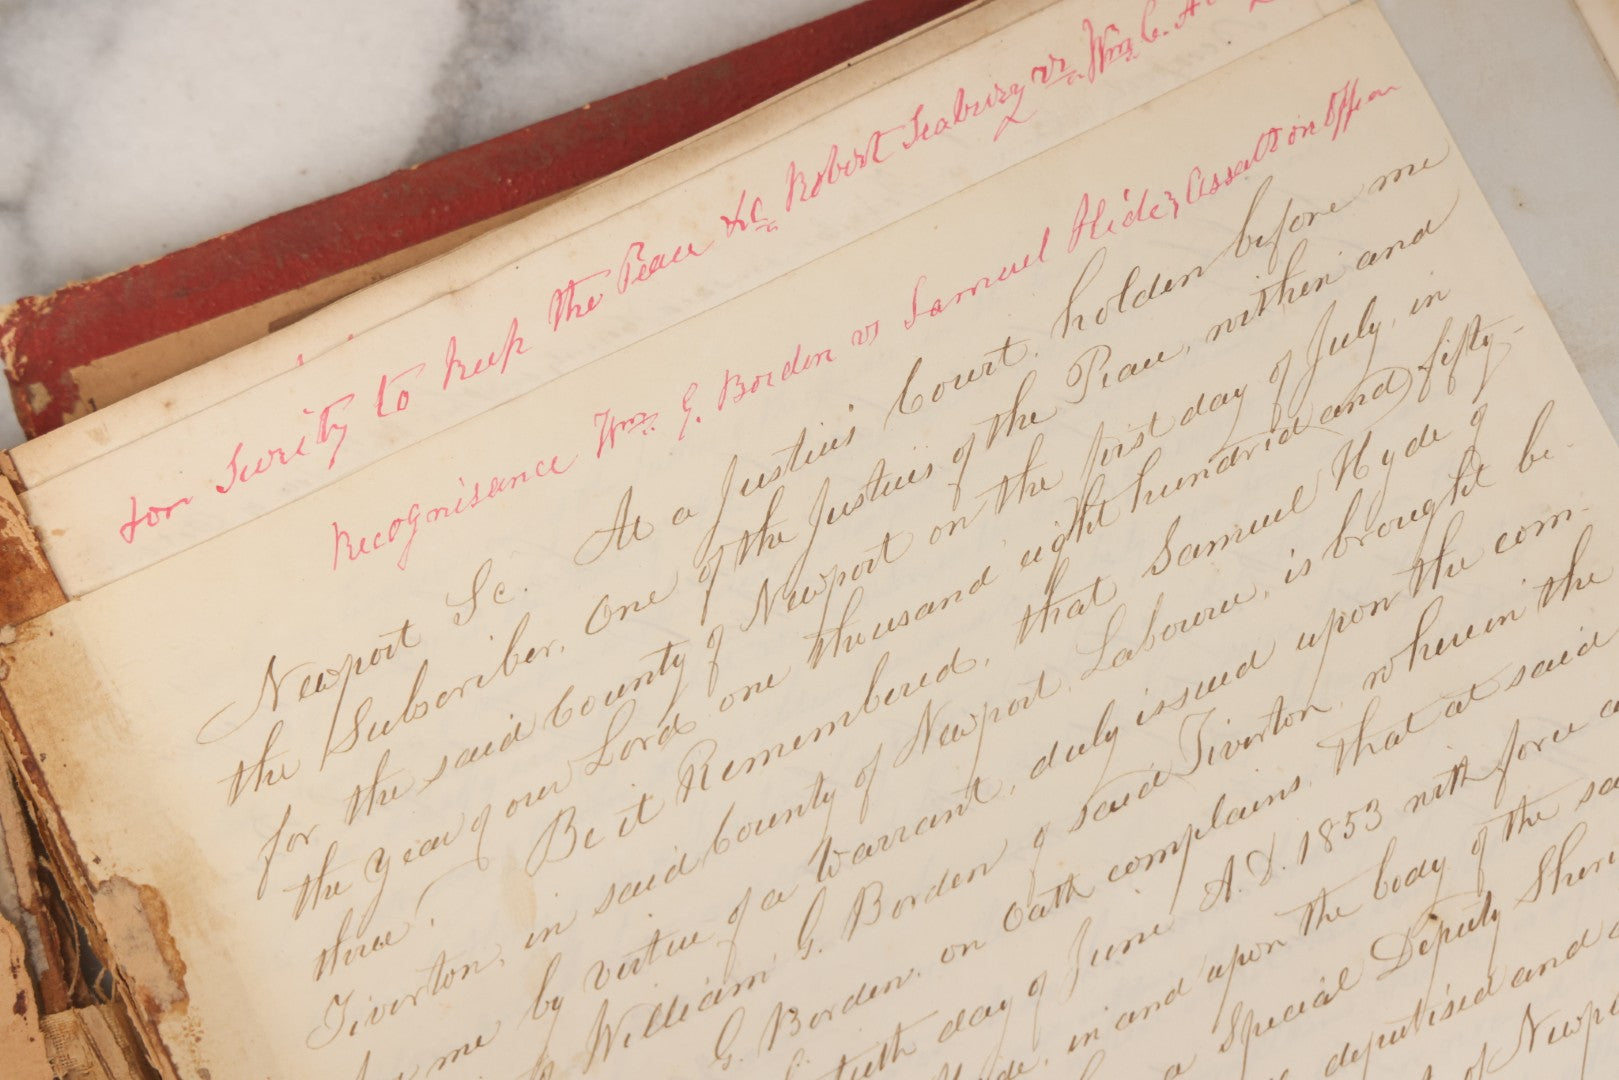 for Surity to keep the Peace &c Robert Seabury vs Wm C.
Recognisance Wm. G. Borden vs Samuel Hide, Assalt on Officer
Newport Sc. At a Justices Court, holden before me
the Subscriber, One of the Justices of the Peace, within and
for the said County of Newport on the first day of July, in
the year of our Lord one thousand eight hundred and fifty-
three. Be it Remembered, that Samuel Hyde of
Tiverton, in said County of Newport, Labourer, is brought be-
me by virtue of a Warrant, duly issued upon the com-
William G. Borden of said Tiverton, wherein the
G. Borden, on Oath complains, that at said
day of June A.D. 1853 with force
in and upon the body of the
a Special Deputy
deputised and
of